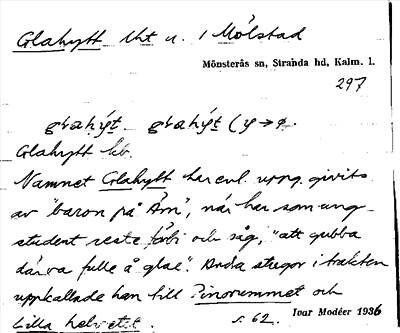 Glahytt lht u. / Mölstad
Mönsterås sn, Stranda hd, Kalm. l.
297
glahýt glahýt (y → ø.
Glahytt kb.
Namnet Glahytt har enl. uppg. givits
av "baron på Åm", när han som ung
student reste förbi och såg, "att gubba
därva fulle å glae". Andra stugor i trakten
uppkallade han till Pinorummet och
Lilla helvetet. s. 62. Ivar Modéer 1936